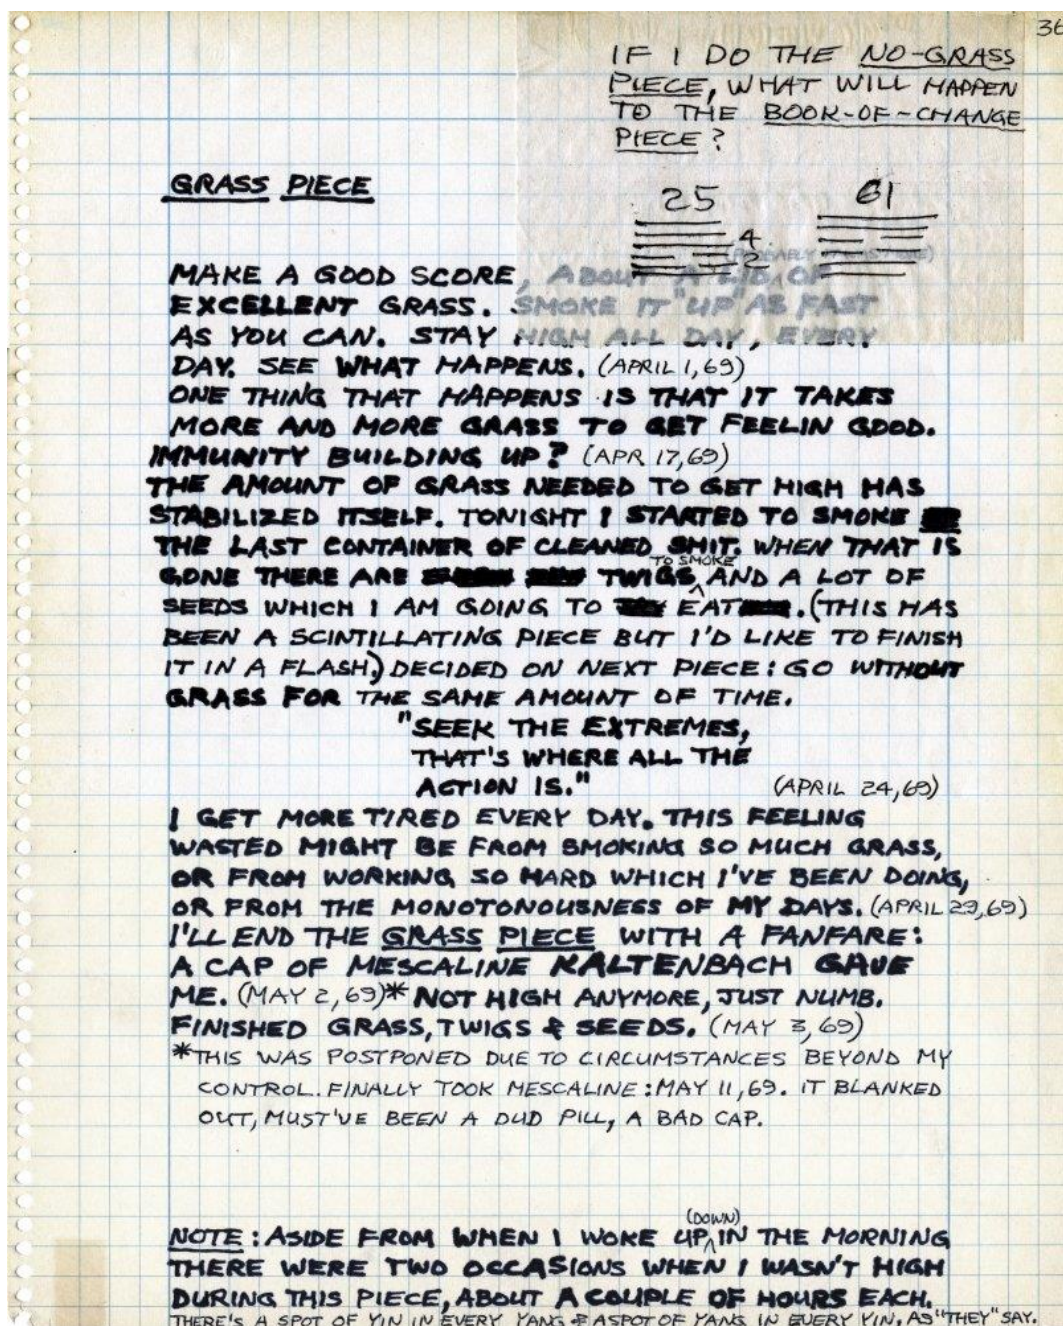 36
IF I DO THE NO-GRASS
PIECE, WHAT WILL HAPPEN
TO THE BOOK-OF-CHANGE
PIECE?
GRASS PIECE
25 61
4
2
MAKE A GOOD SCORE, ABOUT A LID OF
EXCELLENT GRASS. SMOKE IT "UP" AS FAST
AS YOU CAN. STAY HIGH ALL DAY, EVERY
DAY. SEE WHAT HAPPENS. (APRIL 1, 69)
ONE THING THAT HAPPENS IS THAT IT TAKES
MORE AND MORE GRASS TO GET FEELIN GOOD.
IMMUNITY BUILDING UP? (APR 17, 69)
THE AMOUNT OF GRASS NEEDED TO GET HIGH HAS
STABILIZED ITSELF. TONIGHT I STARTED TO SMOKE
THE LAST CONTAINER OF CLEANED SHIT. WHEN THAT IS
GONE THERE ARE TWIGS TO SMOKE AND A LOT OF
SEEDS WHICH I AM GOING TO EAT. (THIS HAS
BEEN A SCINTILLATING PIECE BUT I'D LIKE TO FINISH
IT IN A FLASH.) DECIDED ON NEXT PIECE: GO WITHOUT
GRASS FOR THE SAME AMOUNT OF TIME.
"SEEK THE EXTREMES,
THAT'S WHERE ALL THE
ACTION IS." (APRIL 24, 69)
I GET MORE TIRED EVERY DAY. THIS FEELING
WASTED MIGHT BE FROM SMOKING SO MUCH GRASS,
OR FROM WORKING SO HARD WHICH I'VE BEEN DOING,
OR FROM THE MONOTONOUSNESS OF MY DAYS. (APRIL 29, 69)
I'LL END THE GRASS PIECE WITH A FANFARE:
A CAP OF MESCALINE KALTENBACH GAVE
ME. (MAY 2, 69)* NOT HIGH ANYMORE, JUST NUMB.
FINISHED GRASS, TWIGS & SEEDS. (MAY 3, 69)
*THIS WAS POSTPONED DUE TO CIRCUMSTANCES BEYOND MY
CONTROL. FINALLY TOOK MESCALINE: MAY 11, 69. IT BLANKED
OUT, MUST'VE BEEN A DUD PILL, A BAD CAP.
NOTE: ASIDE FROM WHEN I WOKE UP (DOWN) IN THE MORNING
THERE WERE TWO OCCASIONS WHEN I WASN'T HIGH
DURING THIS PIECE, ABOUT A COUPLE OF HOURS EACH.
THERE'S A SPOT OF YIN IN EVERY YANG & A SPOT OF YANG IN EVERY YIN, AS "THEY" SAY.